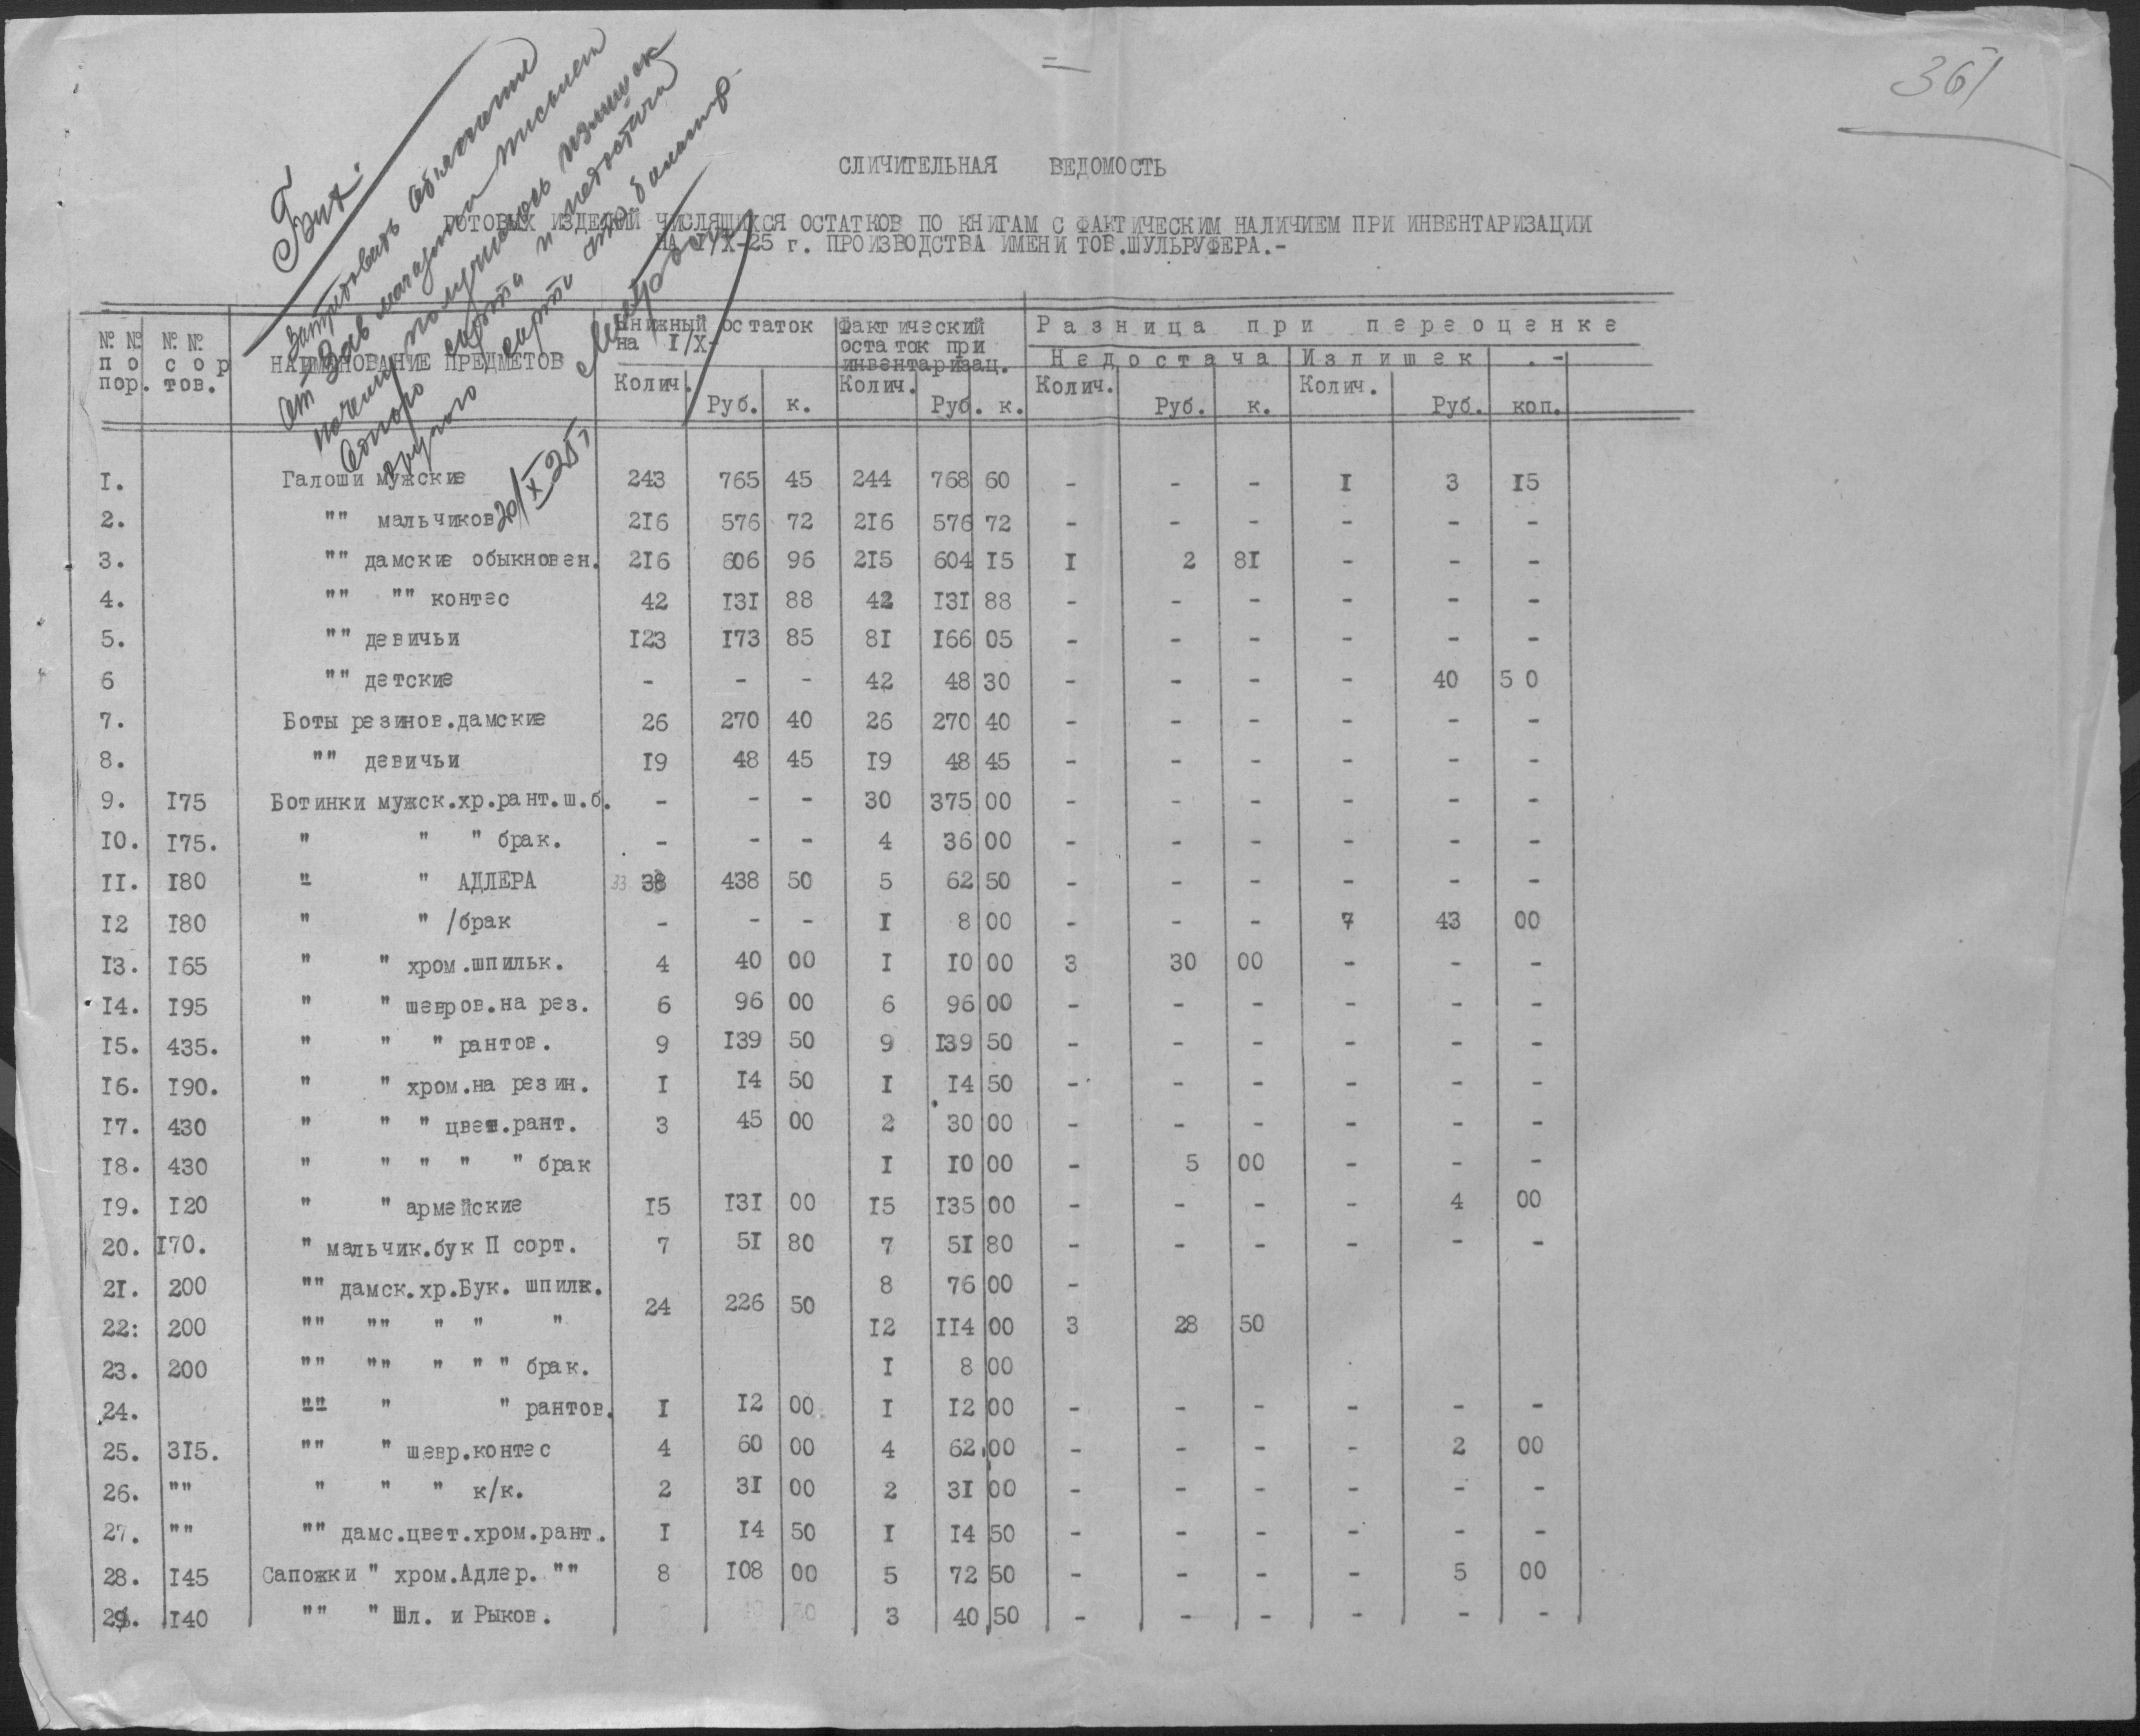 361
СЛИЧИТЕЛЬНАЯ ВЕДОМОСТЬ
ГОТОВЫХ ИЗДЕЛИЙ ЧИСЛЯЩИХСЯ ОСТАТКОВ ПО КНИГАМ С ФАКТИЧЕСКИМ НАЛИЧИЕМ ПРИ ИНВЕНТАРИЗАЦИИ
НА I/X-25 г. ПРОИЗВОДСТВА ИМЕНИ ТОВ.ШУЛЬРУФЕРА.-
Бух.
Затребовать объяснение
от Зав магазином письмен
почему получились излишек
одного сорта и недостача
другого сорта
20/X-25 г
№ № по пор. № № сор тов. НАИМЕНОВАНИЕ ПРЕДМЕТОВ Книжный остаток на I/X- Фактический остаток при инвентаризац. Разница при переоценке
Недостача Излишек .-
Колич. Руб. к. Колич. Руб. к. Колич. Руб. к. Колич. Руб. коп.
I. Галоши мужские 243 765 45 244 768 60 - - - I 3 I5
2. "" мальчиков 2I6 576 72 2I6 576 72 - - - - - -
3. "" дамские обыкновен. 2I6 606 96 2I5 604 I5 I 2 8I - - -
4. "" "" контес 42 I3I 88 42 I3I 88 - - - - - -
5. "" девичьи I23 I73 85 8I I66 05 - - - - - -
6 "" детские - - - 42 48 30 - - - - 40 5 0
7. Боты резинов.дамские 26 270 40 26 270 40 - - - - - -
8. "" девичьи I9 48 45 I9 48 45 - - - - - -
9. I75 Ботинки мужск.хр.рант.ш.б. - - - 30 375 00 - - - - - -
I0. I75. " " " брак. - - - 4 36 00 - - - - - -
II. I80 " " АДЛЕРА 33 38 438 50 5 62 50 - - - - - -
I2 I80 " " /брак - - - I 8 00 - - - 7 43 00
I3. I65 " " хром.шпильк. 4 40 00 I I0 00 3 30 00 - - -
I4. I95 " " шевров.на рез. 6 96 00 6 96 00 - - - - - -
I5. 435. " " " рантов. 9 I39 50 9 I39 50 - - - - - -
I6. I90. " " хром.на резин. I I4 50 I I4 50 - - - - - -
I7. 430 " " " цвет.рант. 3 45 00 2 30 00 - - - - - -
I8. 430 " " " " " брак I I0 00 - 5 00 - - -
I9. I20 " " армейские I5 I3I 00 I5 I35 00 - - - - 4 00
20. I70. " мальчик.бук П сорт. 7 5I 80 7 5I 80 - - - - - -
2I. 200 "" дамск.хр.Бук. шпилк. 8 76 00 -
24 226 50
22: 200 "" "" " " " I2 II4 00 3 28 50
23. 200 "" "" " " " брак. I 8 00
24. "" " " рантов. I I2 00 I I2 00 - - - - - -
25. 3I5. "" " шевр.контес 4 60 00 4 62 00 - - - - 2 00
26. "" " " " к/к. 2 3I 00 2 3I 00 - - - - - -
27. "" "" дамс.цвет.хром.рант. I I4 50 I I4 50 - - - - - -
28. I45 Сапожки " хром.Адлер. "" 8 I08 00 5 72 50 - - - - 5 00
29. I40 "" " Шл. и Рыков. 3 40 50 - - - - - -